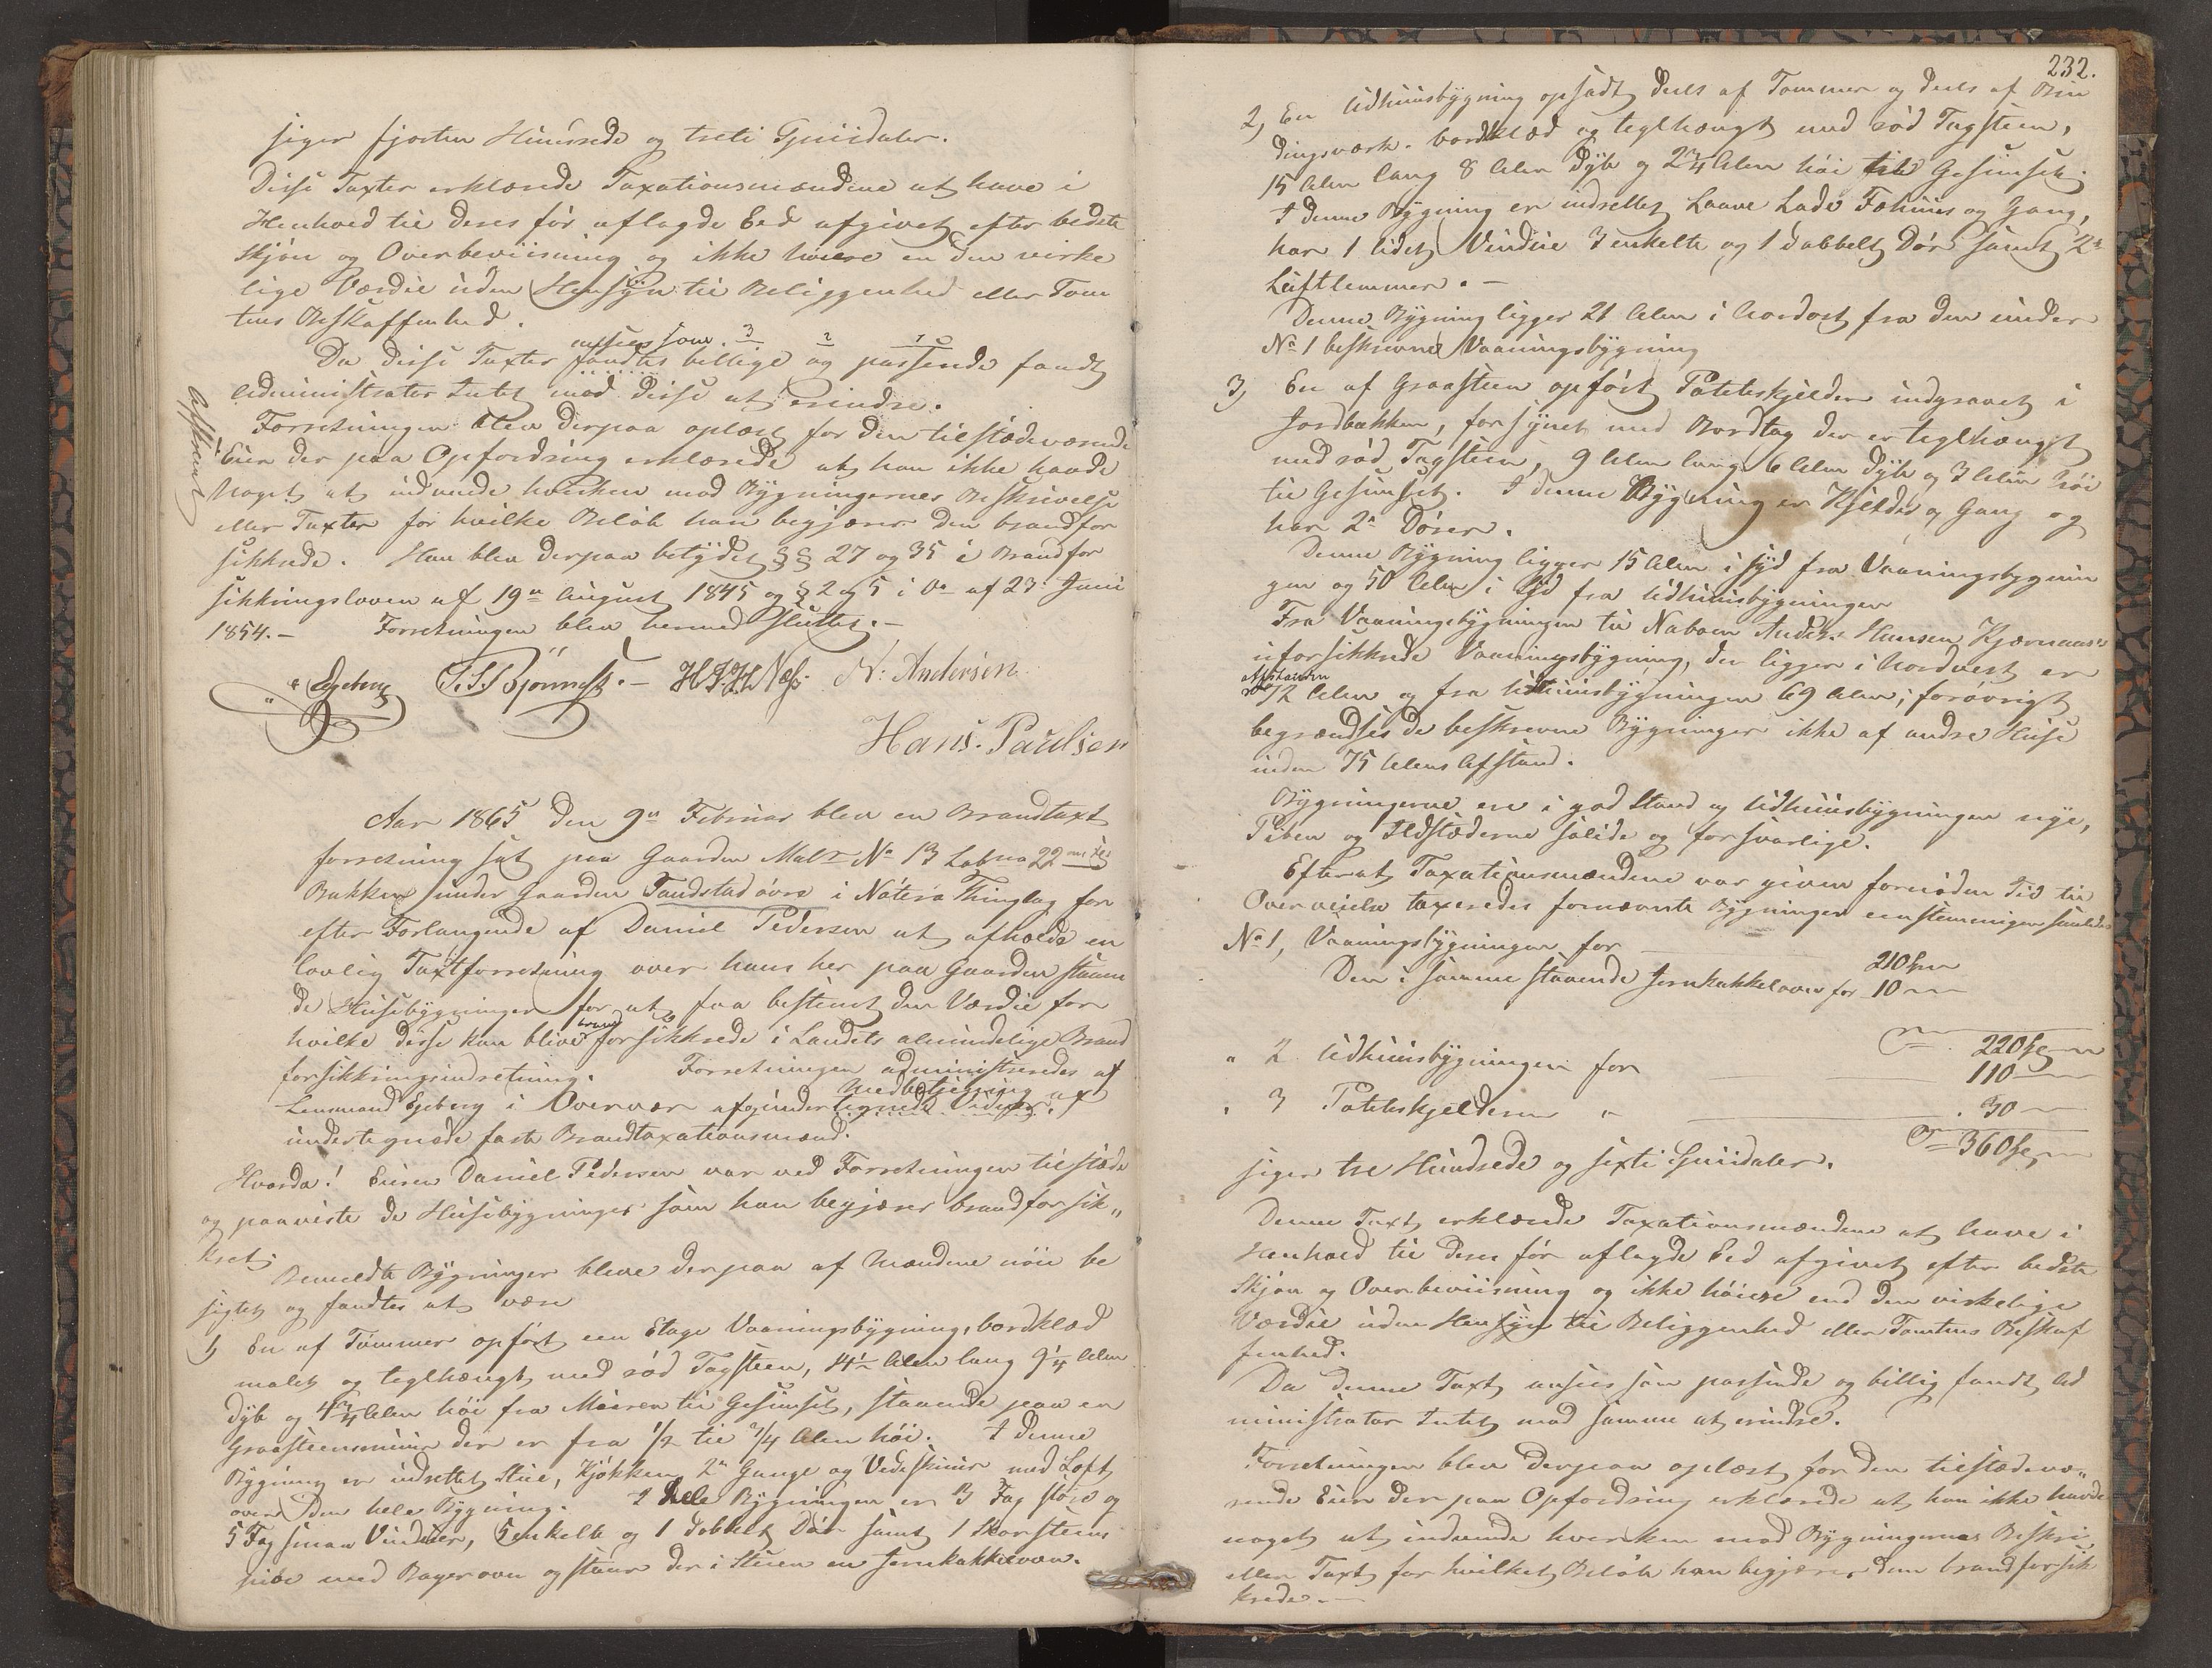 siger fjorten Hundrede og treti Speciedaler.
Disse Taxter erklærede Taxationsmændene at have i
Henhold til deres før aflagde Eed afgivet efter bedste
Skjøn og Overbeviisning og ikke høiere en den virke
lige Værdie uden Hensyn til Beliggenhed eller Tom
tens Beskaffenhed.
ansees som 3 2 1
Da disse Taxter fandtes billige og passende fandt
Administrator Intet mod disse at erindre.
Forretningen blev derpaa oplæst for den tilstædeværende
Eier der paa Opfordring erklærede at han ikke havde
Noget at indvende hverken mod Bygningernes Beskrivelse
eller Taxter for hvilke Beløb han begjærer dem brandfor
sikkrede. Han blev derpaa betydet §§ 27 og 35 i Brandfor
sikkringsloven af 19de August 1845 og § 2 og 5 i do af 23 Juni
1854.- Forretningen blev hermed sluttet.-
Afskrevet
Egeberg H J H Næss. N: Andersen
Hans. Paulsen
Aar 1865 den 9de Februar blev en Brandtaxt
forretning sat paa Gaarden Matr No 13 Løbno 22
Bakken under Gaarden Tandstad øvre i Nøterø Thinglag for
efter Forlangende af Daniel Pedersen at afholde en
lovlig Taxtforretning over hans her paa Gaarden staaen
de Huusebygninger for at faa bestemt den Værdie for
brand
hvilke disse kan blive forsikkrede i Landets almindelige Brand
forsikkringsindretning. Forretningen administreredes af
Lensmand Egeberg i Overvær af
undertegnede faste Brandtaxationsmænd.
Hvorda! Eieren Daniel Pedersen var ved Forretningen tilstæde
og paaviste de Huusebygninger som han begjærer brandforsik„
kret;
Bemeldte Bygninger bleve derpaa af Mændene nøie be
sigtet og fandtes at være
1, En af Tømmer opført een Etage Vaaningsbygning, bordklæd
malet og teglhængt med rød Tagsteen, 14½ Alen lang 9¼ Alen
dyb og 4¾ Alen høi fra Muren til Gesimset, staaende paa en
Graasteensmuur der er fra ½ til ¾ Alen høi. I denne
Bygning er indrettet Stue, Kjøkken, 2de Gange og Vedeskuur med Loft
over den hele Bygning. I hele Bygningen er 3 Fag større og
5 Fag smaa Vinduer, 5 enkelte og 1 dobbelt Dør samt 1 Skorsteens
pibe med Bagerovn og staar der i Stuen en Jernkakkelovn.
232.
2, En Udhuusbygning opsadt deels af Tømmer og deels af Bin
dingsværk. bordklæd og teglhængt med rød Tagsteen,
15 Alen lang 8 Alen dyb og 2¾ Alen høi til Gesimset.
I denne Bygning er indrettet Laave Lade Fæhuus og Gang,
har 1 lidet Vindue 3 enkelte og 1 dobbelt Dør samt 2de
Luftlemmer.-
Denne Bygning ligger 21 Alen i Nordost fra den under
No 1 beskrevne Vaaningsbygning
3, En af Graasteen opført Potteskjelder indgravet i
Jordbakken, forsynet med Bordtag der er teglhængt
med rød Tagsteen, 9 Alen lang 6 Alen dyb og 3 Alen høi
til Gesimset. I denne Bygning er Kjelder og Gang og
har 2de Dører.
Denne Bygning ligger 15 Alen i Syd fra Vaaningsbygnin
gen og 50 Alen i Syd fra Udhuusbygningen
Fra Vaaningsbygningen til Naboen Anders Hansen
uforsikkrede Vaaningsbygning, der ligger i Nordvest er
Afstanden
72 Alen og fra Udhuusbygningen 69 Alen; forøvrigt
begrændses de beskrevne Bygninger ikke af andre Huse
inden 75 Alens Afstand.
Bygningerne ere i god Stand og Udhuusbygningen nye,
Piben og Ildstæderne solide og forsvarlige.
Efterat Taxationsmændene var given fornøden Tid til
Overveielse taxeredes fornævnte Bygninger eenstemmigen saaledes
No 1, Vaaningsbygningen for 210
Den i samme staaende Jernkakkelovn for 10
220
" 2 Udhuusbygningen for 110
" 3 Potteskjelderen " 30
360
siger tre Hundrede og sexti Speciedaler.
Denne Taxt erklærede Taxationsmændene at have i
Henhold til deres før aflagde Eed afgivet efter bedste
Skjøn og Overbeviisning og ikke høiere end den virkelige
Værdie uden Hensyn til Beliggenhed eller Tomtens Beskaf
fenhed.
Da denne Taxt ansees som passende og billig fandt Ad
ministrator Intet mod samme at erindre.
Forretningen blev derpaa oplæst for den tilstædevæ„
rende Eier der paa Opfordring erklærede at han ikke havde
noget at indvende hverken mod Bygningernes Beskri
eller Taxt for hvilket Beløb han begjærer dem brandforsik
krede.-